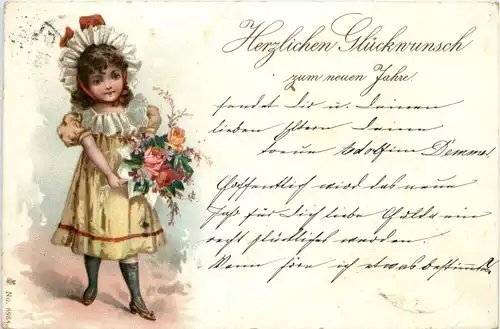 Herzlichen Glückwunsch
zum neuen Jahre.
sendet Dir u. Deinen
lieben Eltern Deine
treue Adolfine Demme!
Hoffentlich wird das neue
Jahr für Dich liebe ein
recht glückliches werden.
Wann höre ich etwas bestimmtes?
No. 6984